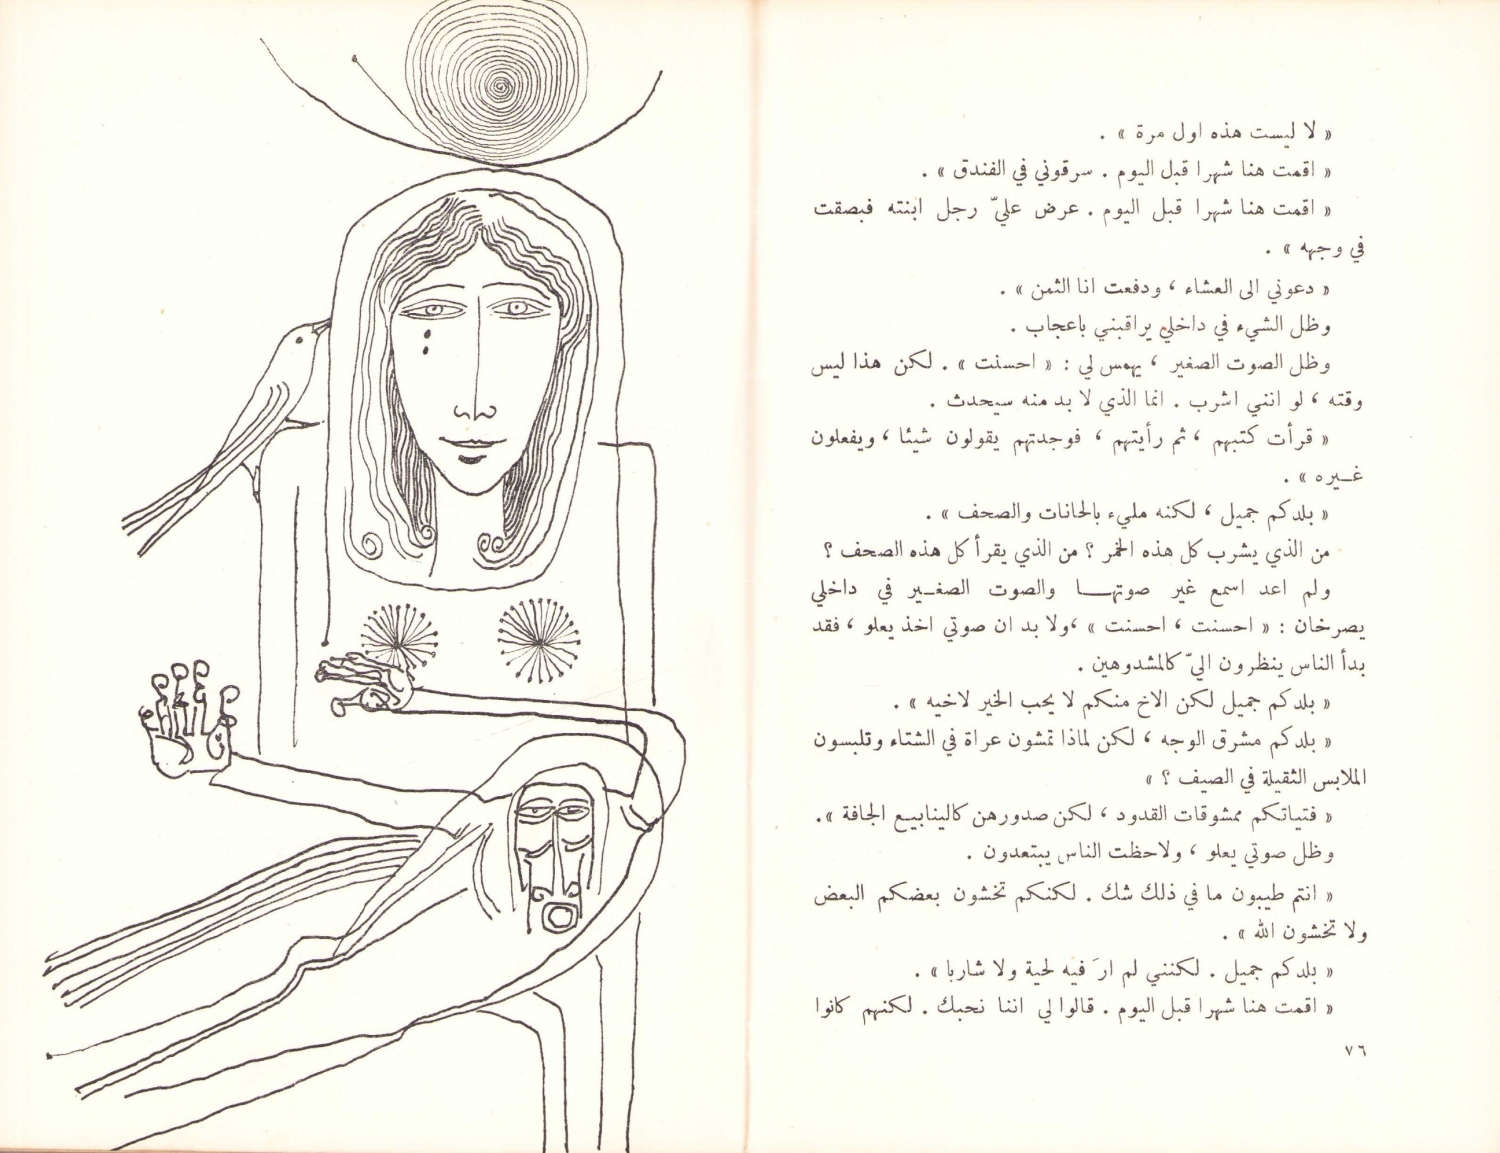 « لا ليست هذه اول مرة » .
« اقمت هنا شهرا قبل اليوم . سرقوني في الفندق » .
« اقمت هنا شهرا قبل اليوم . عرض عليّ رجل ابنته فبصقت
في وجهه » .
« دعوني الى العشاء ، ودفعت انا الثمن » .
وظل الشيء في داخلي يراقبني باعجاب .
وظل الصوت الصغير ، يهمس لي : « احسنت » . لكن هذا ليس
وقته ، لو انني اشرب . انما الذي لا بد منه سيحدث .
« قرأت كتبهم ، ثم رأيتهم ، فوجدتهم يقولون شيئا ، ويفعلون
غـيره » .
« بلدكم جميل ، لكنه مليء بالحانات والصحف » .
من الذي يشرب كل هذه الخمر ؟ من الذي يقرأ كل هذه الصحف ؟
ولم اعد اسمع غير صوتهـــا والصوت الصغـير في داخلي
يصرخان : « احسنت ، احسنت » ،ولا بد ان صوتي اخذ يعلو ، فقد
بدأ الناس ينظرون اليّ كالمشدوهين .
« بلدكم جميل لكن الاخ منكم لا يحب الخير لاخيه » .
« بلدكم مشرق الوجه ، لكن لماذا تمشون عراة في الشتاء وتلبسون
الملابس الثقيلة في الصيف ؟ »
« فتياتكم ممشوقات القدود ، لكن صدورهن كالينابيـع الجافة ».
وظل صوتي يعلو ، ولاحظت الناس يبتعدون .
« انتم طيبون ما في ذلك شك . لكنكم تخشون بعضكم البعض
ولا تخشون الله » .
« بلدكم جميل . لكنني لم ارَ فيه لحية ولا شاربا » .
« اقمت هنا شهرا قبل اليوم . قالوا لي اننا نحبك . لكنهم كانوا
٧٦